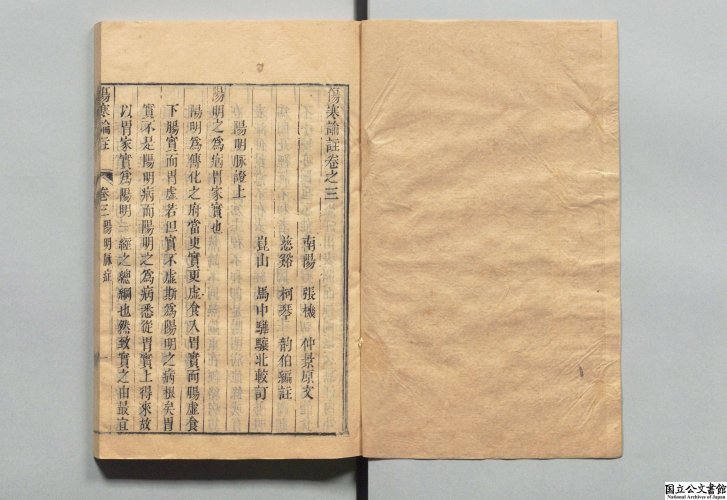 傷寒論註卷之三
南陽 張機 仲景原文
慈谿 柯琴 韵伯編註
崑山 馬中驊驤北較訂
陽明脉證上
陽明之為病胃家實也
陽明為傳化之府當更實更虛食入胃實而腸虛食
下腸實而胃虛若但實不虛斯為陽明之病根矣胃
實不是陽明病而陽明之為病悉從胃實上得來故
以胃家實為陽明一經之總綱也然致實之由最宜
傷寒論註 卷三 陽明脉症 一
国立公文書館
National Archives of Japan